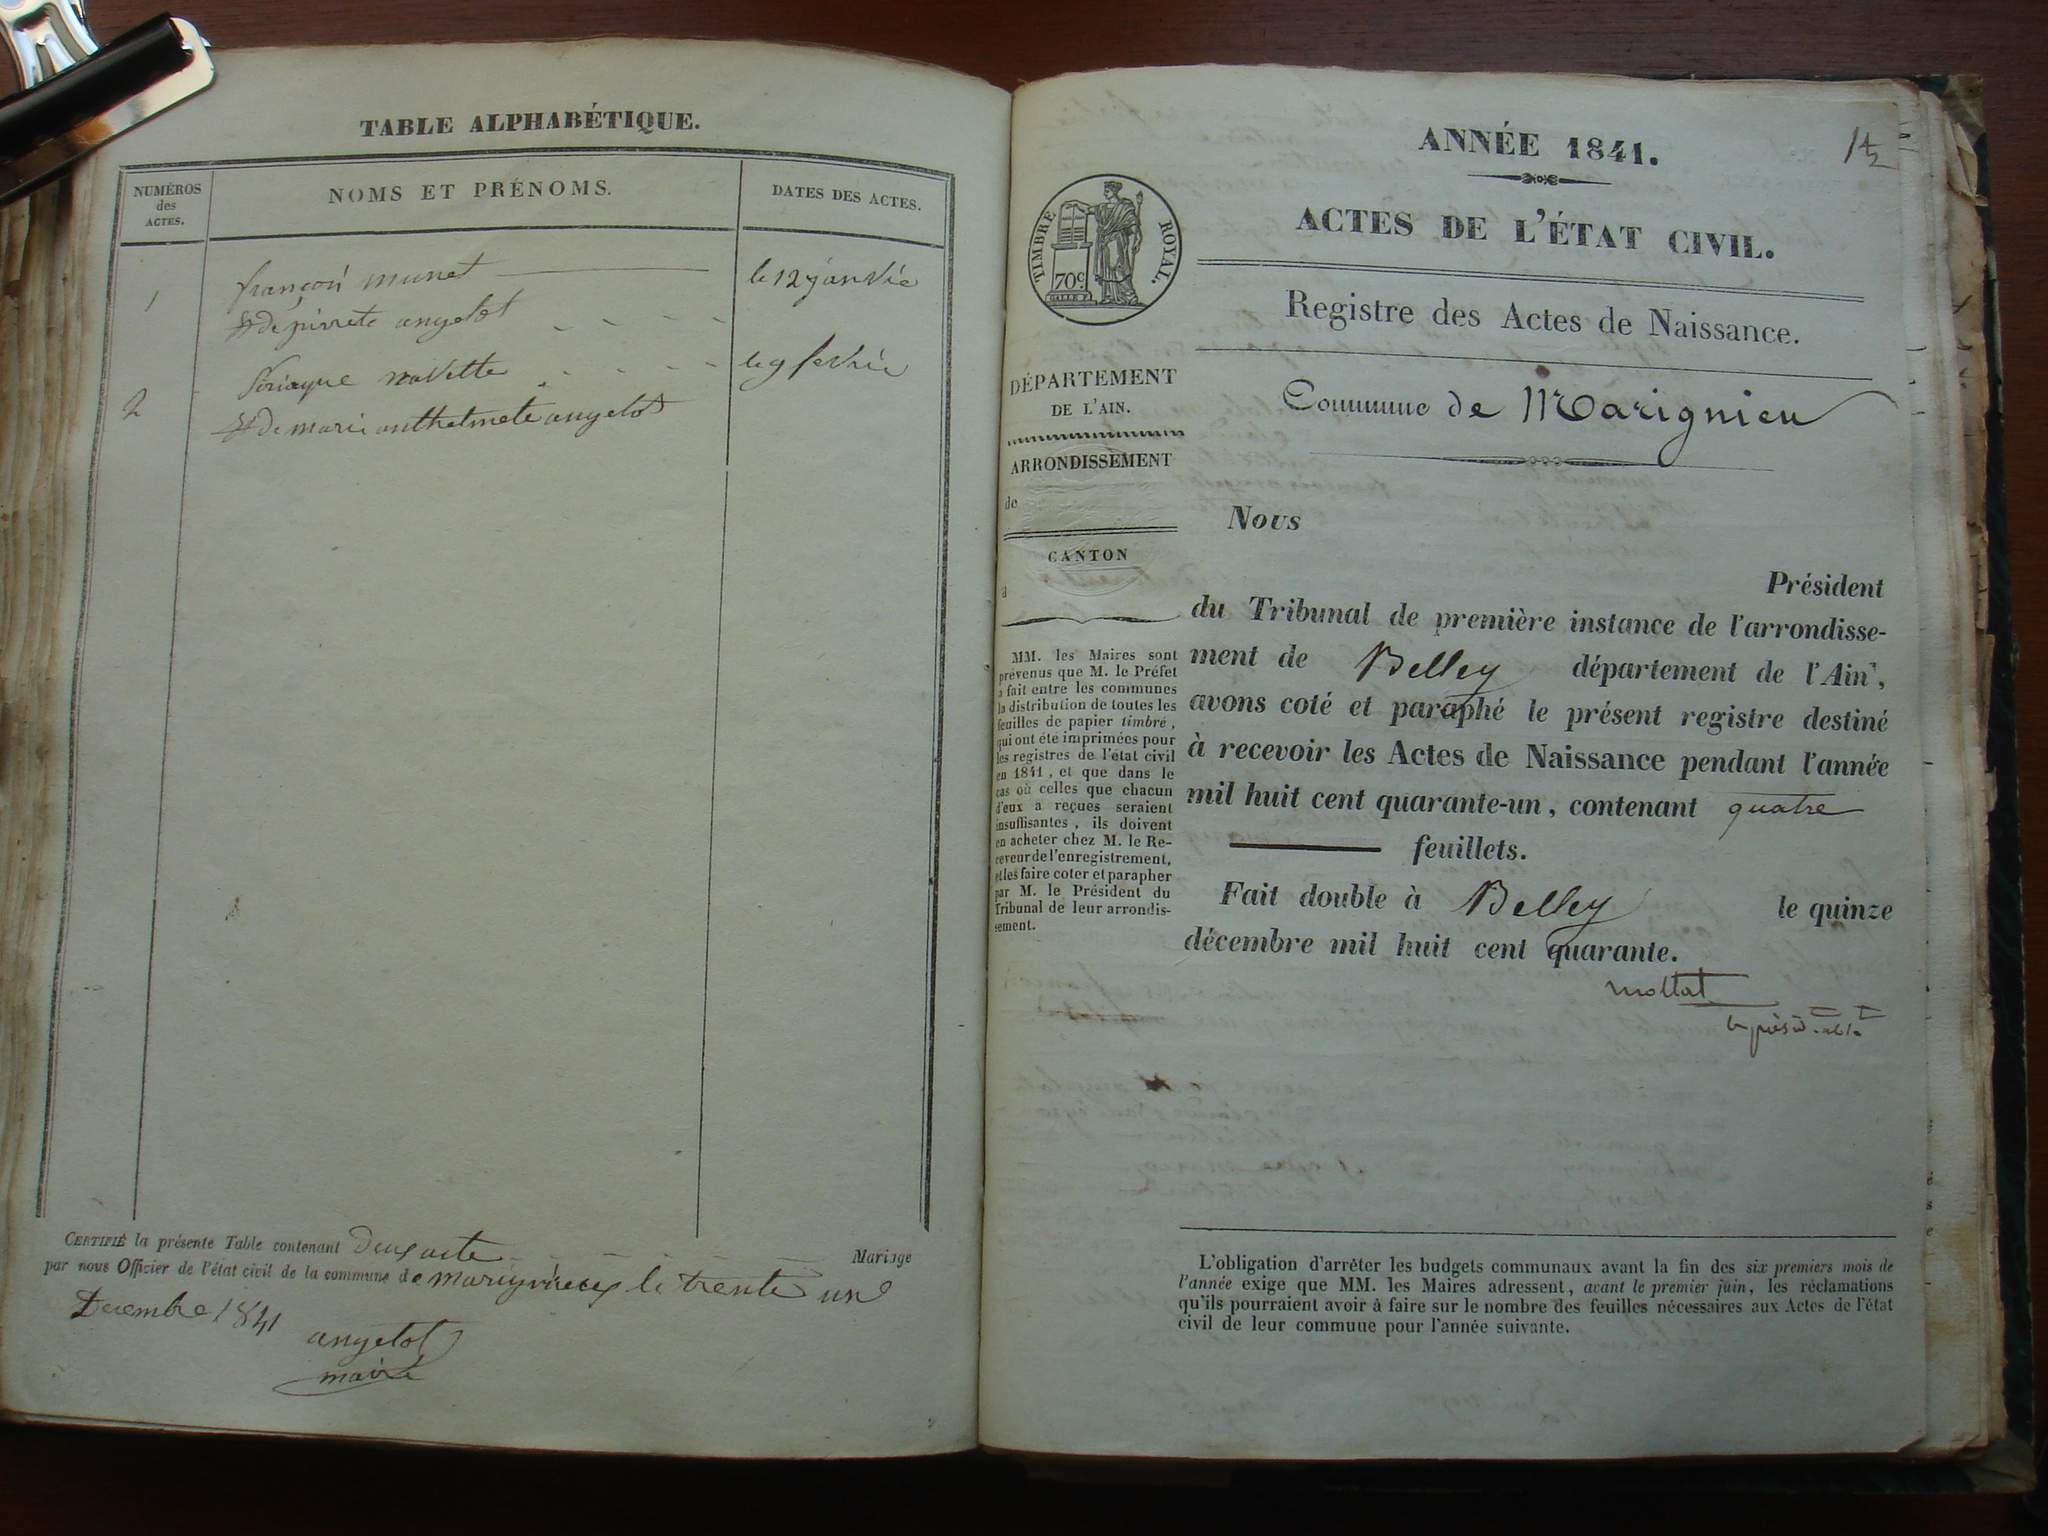 TABLE ALPHABÉTIQUE.
NUMÉROS
des
ACTES.
NOMS ET PRÉNOMS.
DATES DES ACTES.
1
françois munet
le 12 janvie
& de pierrete angelot
2
navette
le 9 fevrie
& de marie anthelmete angelot
CERTIFIÉ la présente Table contenant deux acte Mariage
par nous Officier de l'état civil de la commune de marignieux le trente une
Decembre 1841
angelot
maire
ANNÉE 1841.
ACTES DE L'ÉTAT CIVIL.
TIMBRE ROYAL.
70c
Registre des Actes de Naissance.
Commune de Marignieu
DÉPARTEMENT
DE L'AIN.
ARRONDISSEMENT
de
CANTON
d
MM. les Maires sont
prévenus que M. le Préfet
a fait entre les communes
la distribution de toutes les
feuilles de papier timbré,
qui ont été imprimées pour
les registres de l'état civil
en 1841, et que dans le
cas où celles que chacun
d'eux a reçues seraient
insuffisantes, ils doivent
en acheter chez M. le Re-
ceveur de l'enregistrement,
et les faire coter et parapher
par M. le Président du
Tribunal de leur arrondis-
sement.
Nous
Président
du Tribunal de première instance de l'arrondisse-
ment de Belley département de l'Ain,
avons coté et paraphé le présent registre destiné
à recevoir les Actes de Naissance pendant l'année
mil huit cent quarante-un, contenant quatre
feuillets.
Fait double à Belley le quinze
décembre mil huit cent quarante.
mollat
L'obligation d'arrêter les budgets communaux avant la fin des six premiers mois de
l'année exige que MM. les Maires adressent, avant le premier juin, les réclamations
qu'ils pourraient avoir à faire sur le nombre des feuilles nécessaires aux Actes de l'état
civil de leur commune pour l'année suivante.